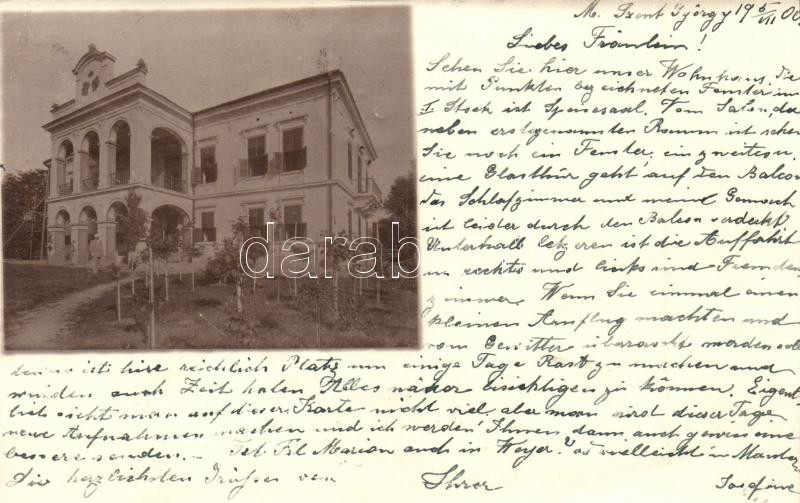 M. Szent György 19 5/VII 00.
Liebes Fräulein!
Sehen Sie hier unser Wohnhaus, die
mit Punkten bezeichneten Fenster im
I Stock ist Speisesaal. Vom Salon, da
neben erstgenannten Raum ist sehen
Sie noch ein Fenster, ein zweites u.
eine Glasthür geht auf den Balcon
das Schlafzimmer und mein Gemach
ist leider durch den Balcon verdeckt
Unterhalb letzteren ist die Auffahrt
u. rechts und links sind Fremden
zimmer. Wenn Sie einmal einen
kleinen Ausflug machten und
vom Gewitter überrascht werden soll
ten so ist hier reichlich Platz um einige Tage Rast zu machen und
würden auch Zeit haben Alles näher besichtigen zu können. Eigent
lich sieht man auf dieser Karte nicht viel, aber man wird dieser Tage
neue Aufnahmen machen und ich werden Ihnen dann auch gewiss eine
bessere senden. - Ist Frl. Marion auch in Weyer? od. vielleicht in
Die herzlichsten Grüsse von Ihrer Josefine
darab